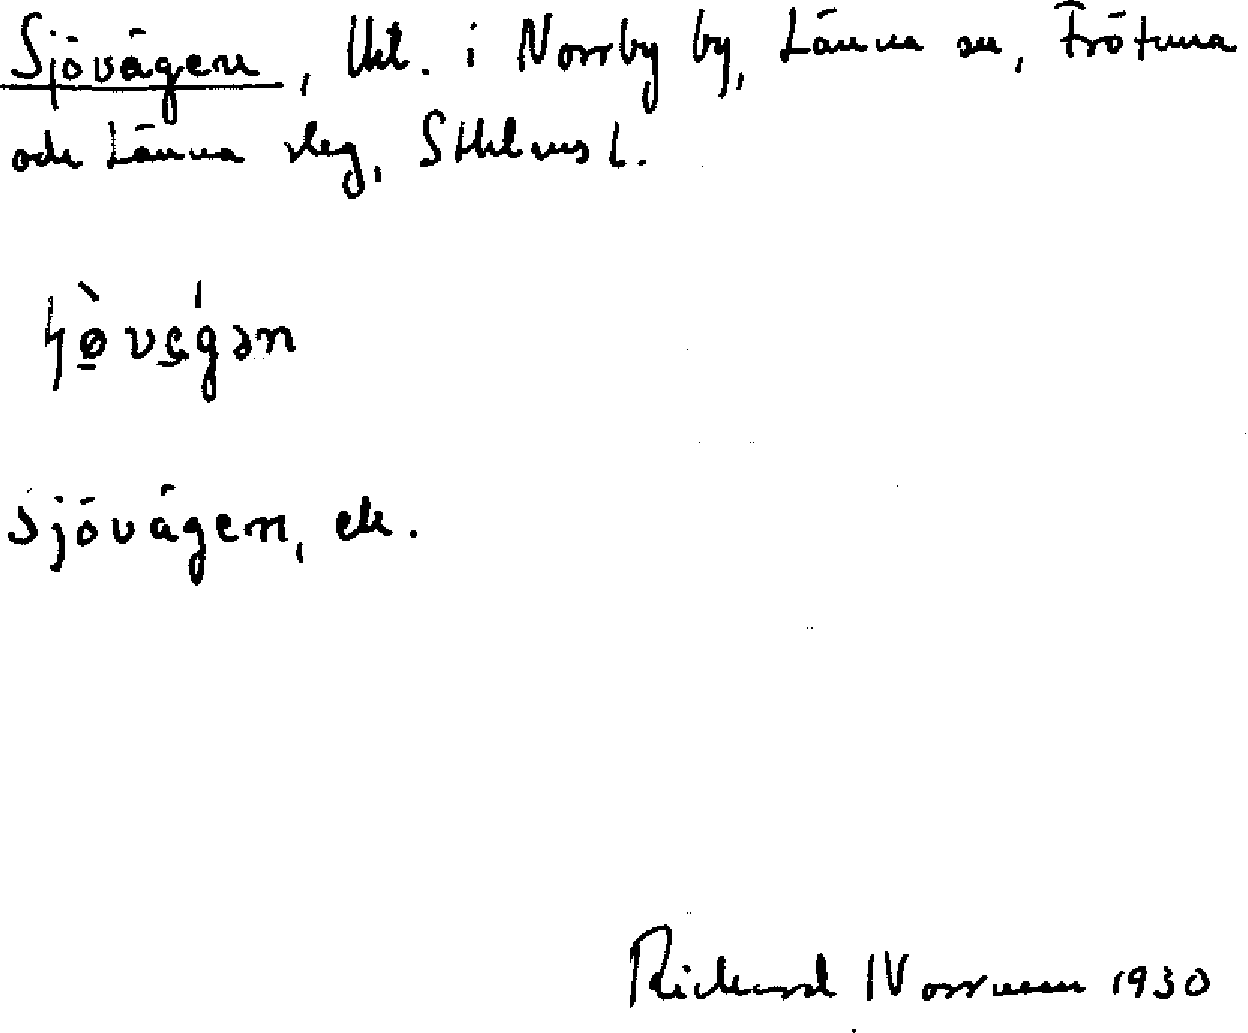 Sjövägen, Ukl. i Norrby by, Länna sn, Frötuna
och Länna slg, Sthlms l.
ɧø̀vɛ́gən
Sjövägen, ek.
Rickard Norrman 1930